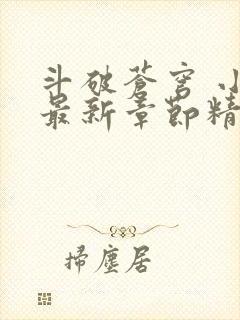 斗破蒼穹 小
最新章節精
掃塵居